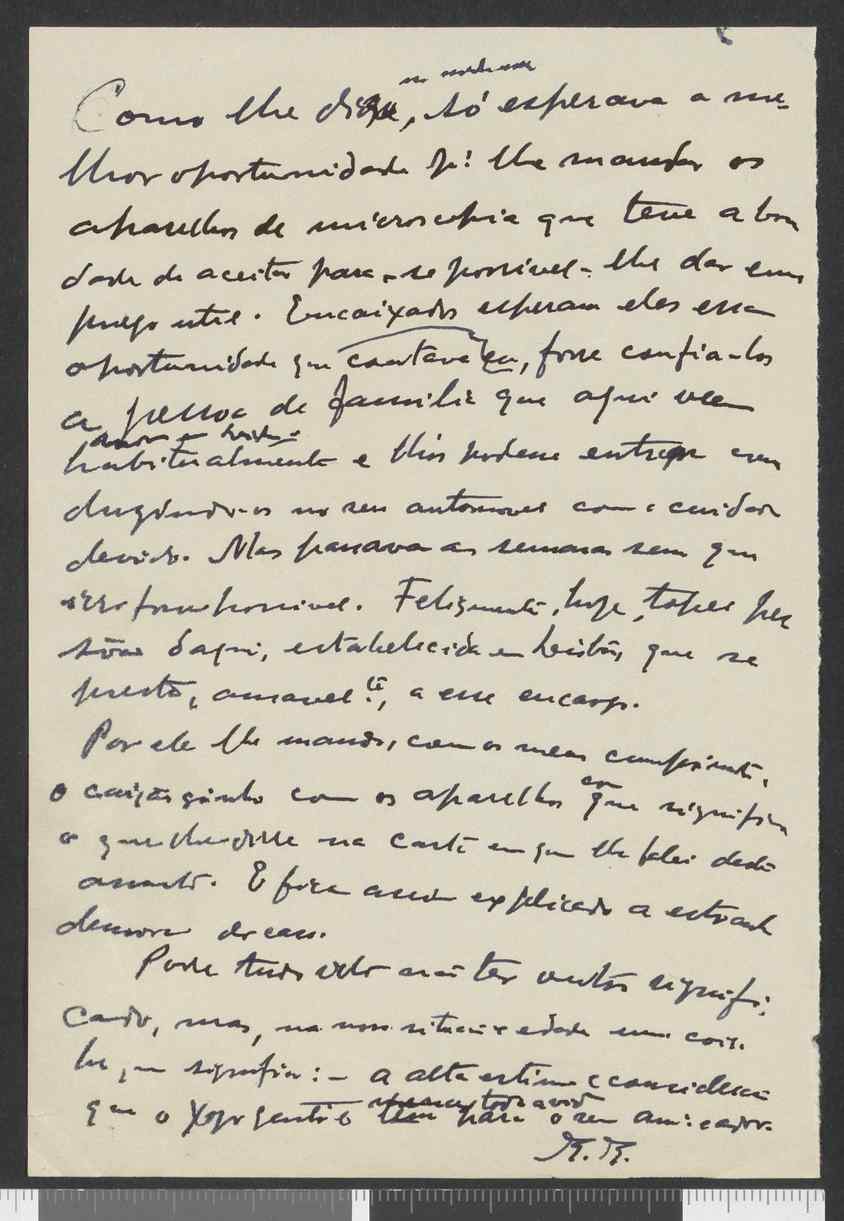 Como lhe disse, só esperava a me-
lhor oportunidade p.ª lhe mandar os
aparelhos de microscopia que teve a bon
dade de aceitar para - se possivel - lhe dar em
prego util. Encaixados esperam eles essa
oportunidade que contava eu, fosse confia-los
a pessoa de familia que aqui vem
habitualmente e lhos podesse entregar con
duzindo-os no seu automovel com o cuidado
devido. Mas passavam as semanas sem que
isso fosse possivel. Felizmente, hoje, topei pes
sôa daqui, estabelecida em Lisbôa, que se
presta, amavel.te, a esse encargo.
Por ele lhe mando, com os meus cumprimentos,
o caixotinho com os aparelhos que significa
o que lhe disse na carta em que lhe falei deste
assunto. E fica assim explicada a
demora do caso.
Pode tudo isto não ter outro signifi-
cado, mas, na nossa situação e idade uma coisa
significa: - a alta estima e consideração
que o tem para o seu am.º e ador.